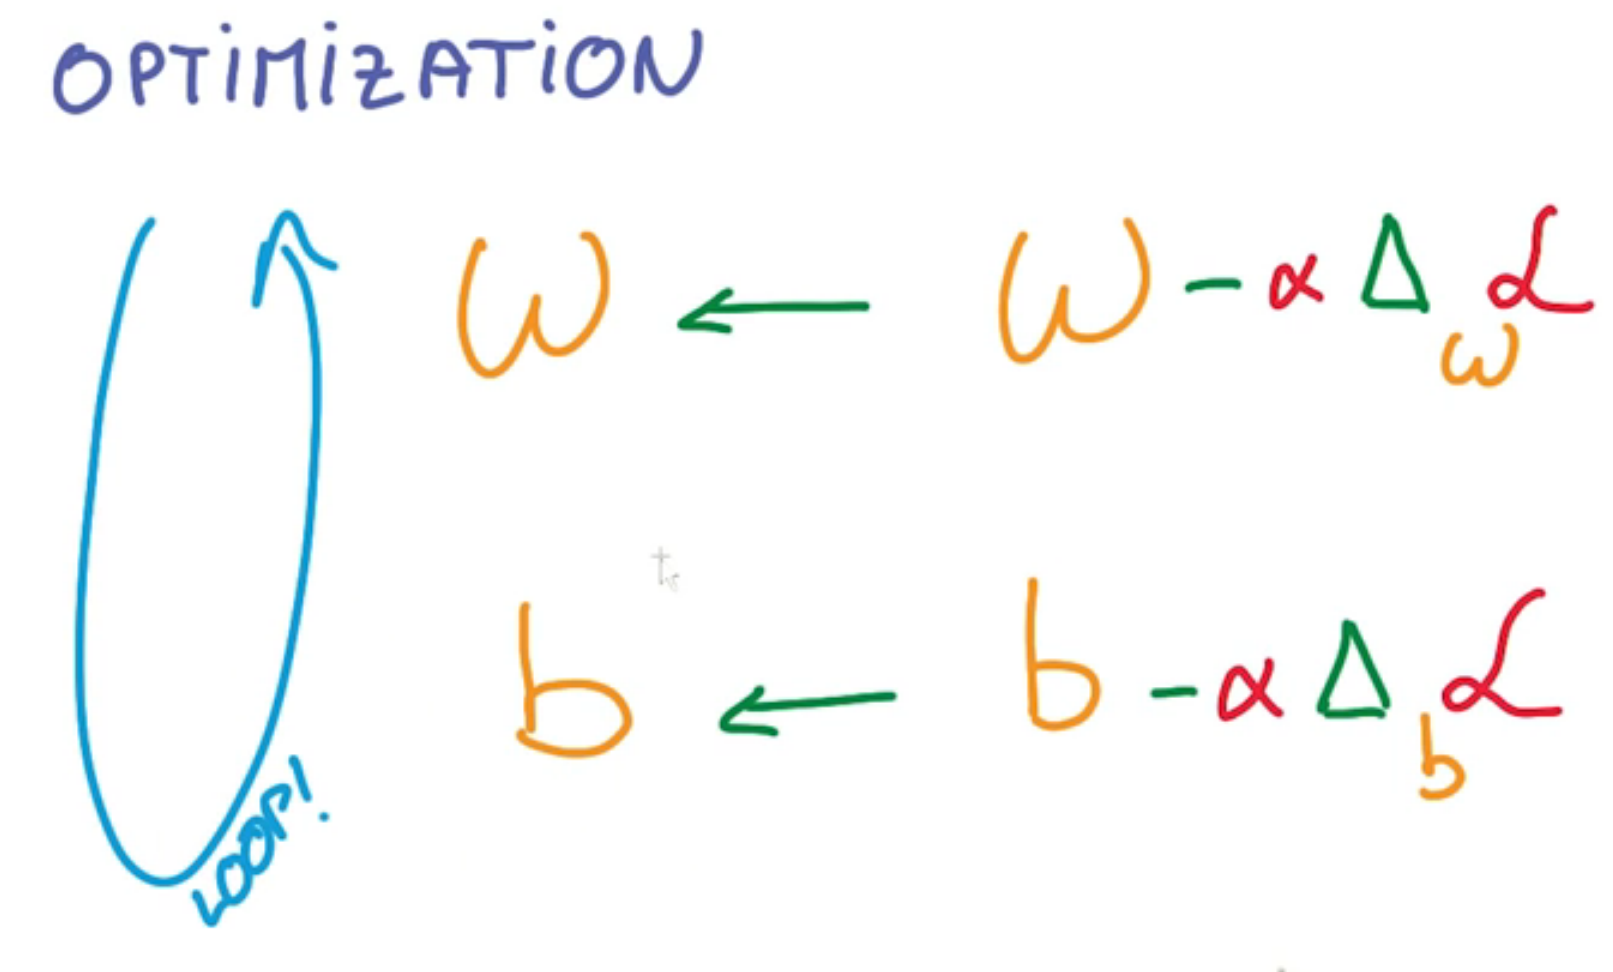 OPTiMiZATiON
ω ← ω - α Δ ω ℒ
b ← b - α Δ b ℒ
LOOP!